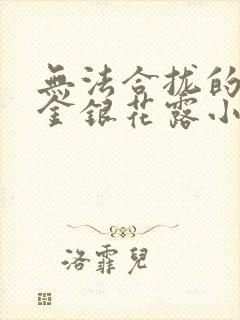 無法合拢的
金銀花露小
洛霏兒